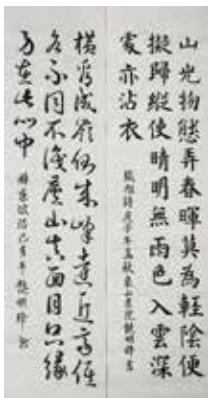 山光物態弄春暉莫為輕陰便
擬歸縱使晴明無雨色入雲深
處亦沾衣
橫看成嶺側成峰遠近高低
各不同不識廬山真面目只緣
身在此山中